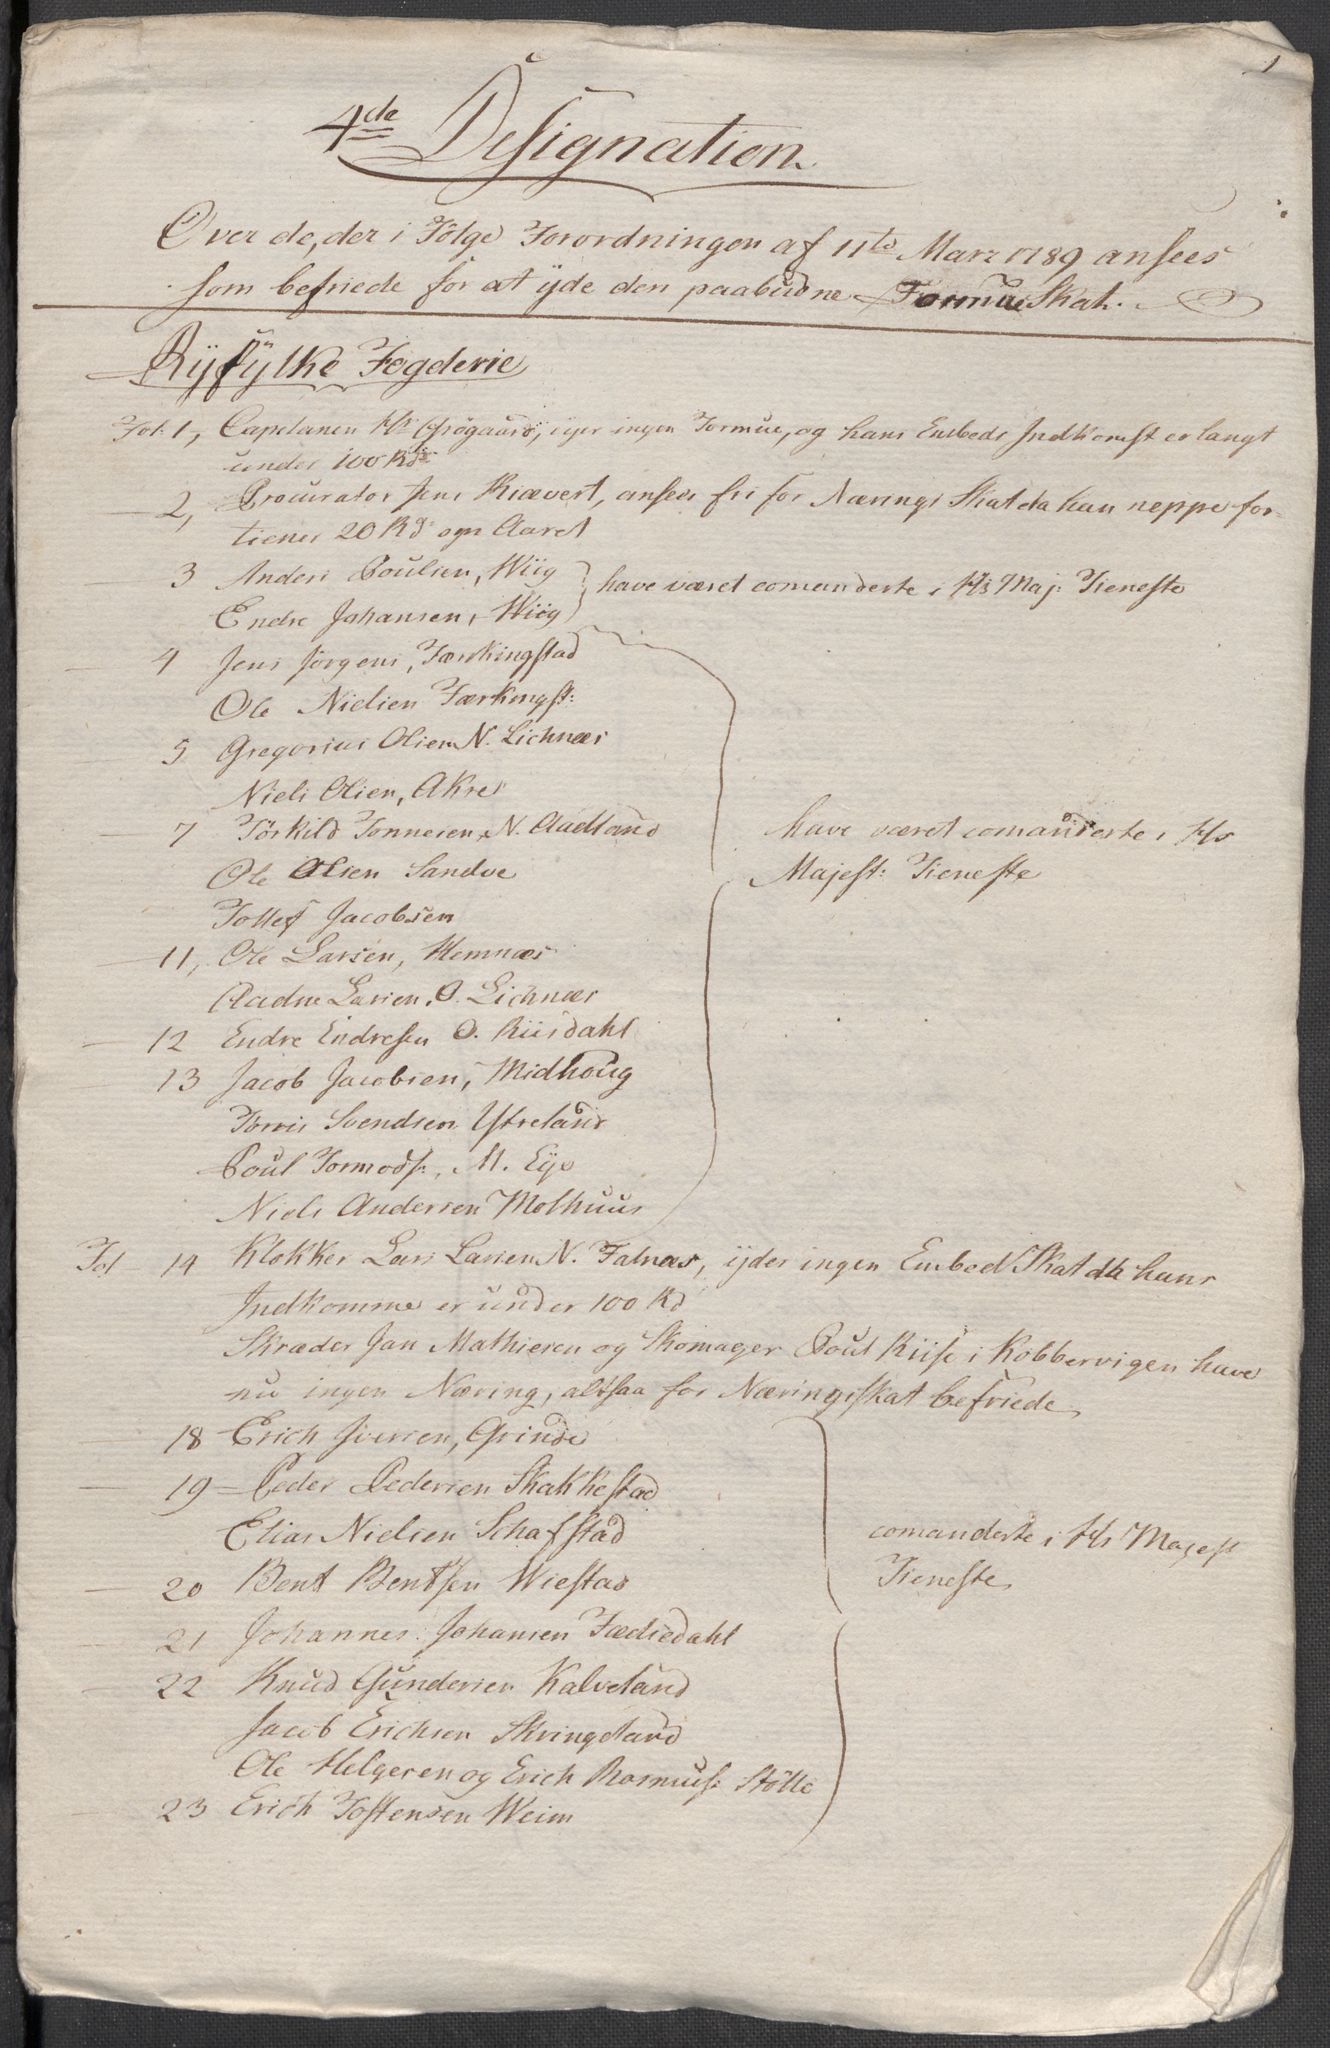 1
4de Designation
Over de, der i Følge Forordningen af 11te Marz 1789 ansees
som befriede for at ÿde den paabudne Formue Skat.
Rÿfÿlke Fogderie
Fol. 1, Capelanen Hr Grøgaard, ejer ingen Formue, og hans Embeds Indkomst er langt
under 100 Rd
2, Procurator Jens Kiævert, ansees fri for Nærings Skat da han neppe for-
tiener 20 Rd om Aaret
3 Anders Poulsen, Wiig
Endre Johansen, Wiig
have været comanderte i Hs Maj: Tieneste
4 Jens Jørgens, Færkingstad
Ole Nielsen Færkingst:
5 Gregorius Olsen N. Lichnæs
Niels Olsen, Akre
7 Torkild Tonnesen, N. Aadland
Ole Olsen Sandve
Tollef Jacobsen
have været comanderte i Hs
Majest: Tieneste
11, Ole Larsen, Hemnæs
Aadne Larsen, O. Lichnæs
12 Endre Endresen O. Riisdahl
13 Jacob Jacobsen, Midhoug
Torris Svendsen Ytreland
Poul Tormods:, M. Eÿe
Niels Andersen Molhuus
Fol 14 Klokker Lars Larsen N. Falnæs, ÿder ingen Embed Skat da hans
Indkomme er under 100 Rd
Skræder Jan Mathiesen og Skomager Poul Riise i Kobbervigen have
nu ingen Næring, altsaa for Næringsskat befriede
18 Erich Iversen, Grinde
19 Peder Pedersen Skakkestad
Elias Nielsen Schafstad
20 Bent Bentsen Wiestad
comanderte i Hs Majest
Tieneste
21 Johannes Johansen Fædsedahl
22 Knud Gundersen Kalveland
Jacob Erichsen Skringeland
Ole Helgesen og Erich Rasmus: Stølle
23 Erich Tostensen Weim